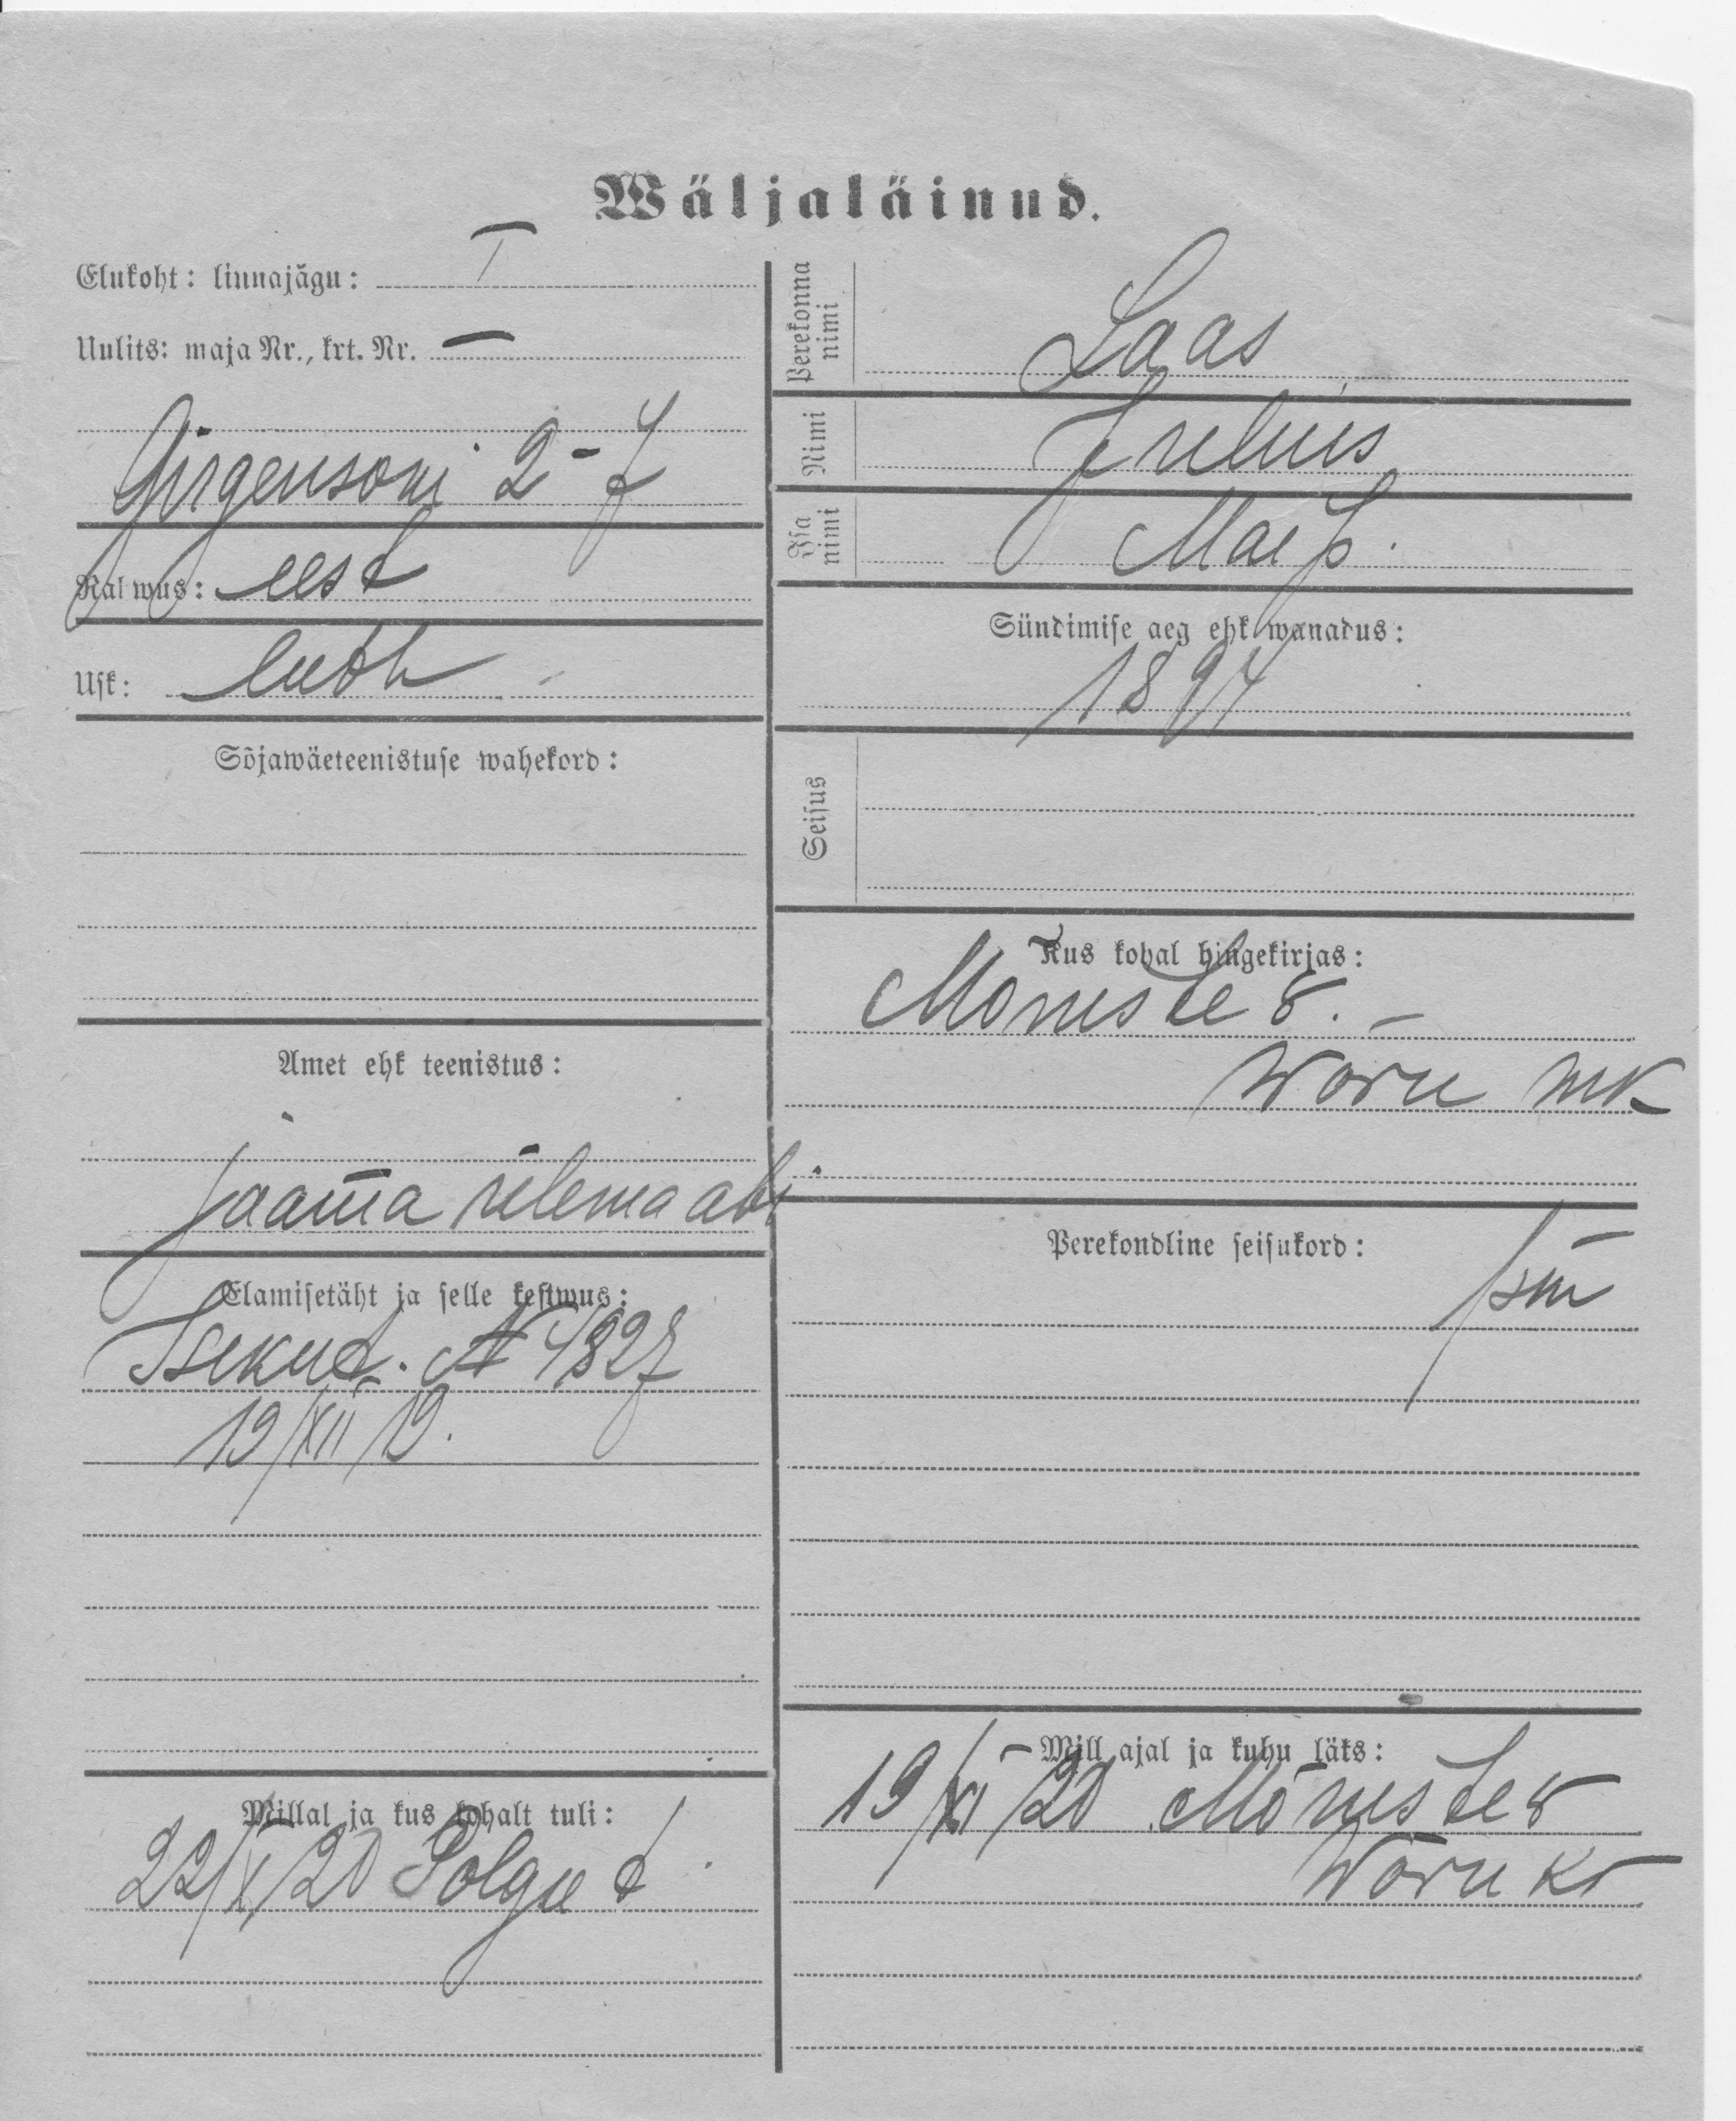 Wäljaläinud.
Elukoht: linnajägu: I
Uulits: maja Nr., krt. Nr. —
Girgensoni 2-7
Rahwus: eest
Usk: luth
Sõjawäeteenistuse wahekord:
Amet ehk teenistus:
jaama ülema abi.
Elamisetäht ja selle kestwus:
Isikut. N 4827
19/XII 19.
Millal ja kus kohalt tuli:
22/X 20 Polgu
Perekonna nimi
Laas
Nimi
Julius
Isa nimi
Sündimise aeg ehk wanadus:
1897
Seisus
Kus kohal hingekirjas:
Mõniste w.
Wõru mk
Perekondline seisukord:
Mill ajal ja kuhu läks:
19/XI 20 Mõniste w
Wõru kr